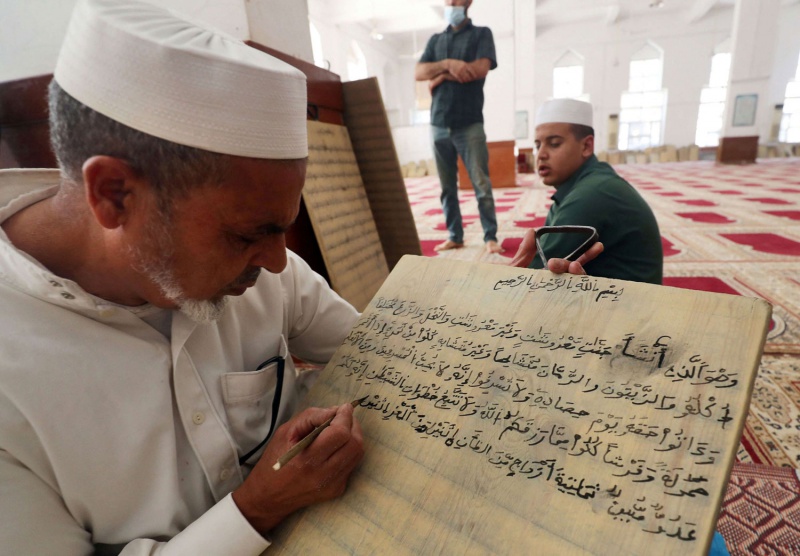 بسم الله الرحمن الرحيم
وهو الذي أنشأ جنت معروشت وغير معروشت والنخل والزرع مختلفا
اكله والزيتون والرمان متشبها وغير متشبه كلوا من ثمره إذا أثمر
وءاتوا حقه يوم حصاده ولا تسرفوا إنه لا يحب المسرفين ومن الأنعم
حمولة وفرشا كلوا مما رزقكم الله ولا تتبعوا خطوت الشيطن إنه لكم
عدو مبين ثمنية أزوج من الضأن اثنين ومن المعز اثنين